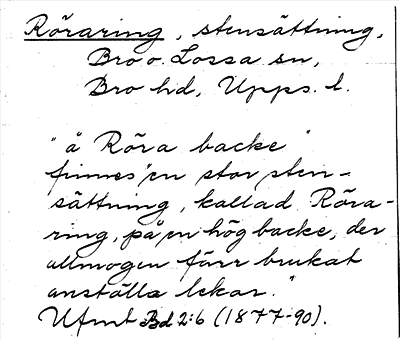 Röraring, stensättning,
Bro o. Lossa sn,
Bro hd, Upps. l.
"å Röra backe"
finnes "en stor sten-
sättning, kallad Röra-
ring, på en hög backe, der
allmogen förr brukat
anställa lekar."
Ufmt Bd 2:6 (1877-90).